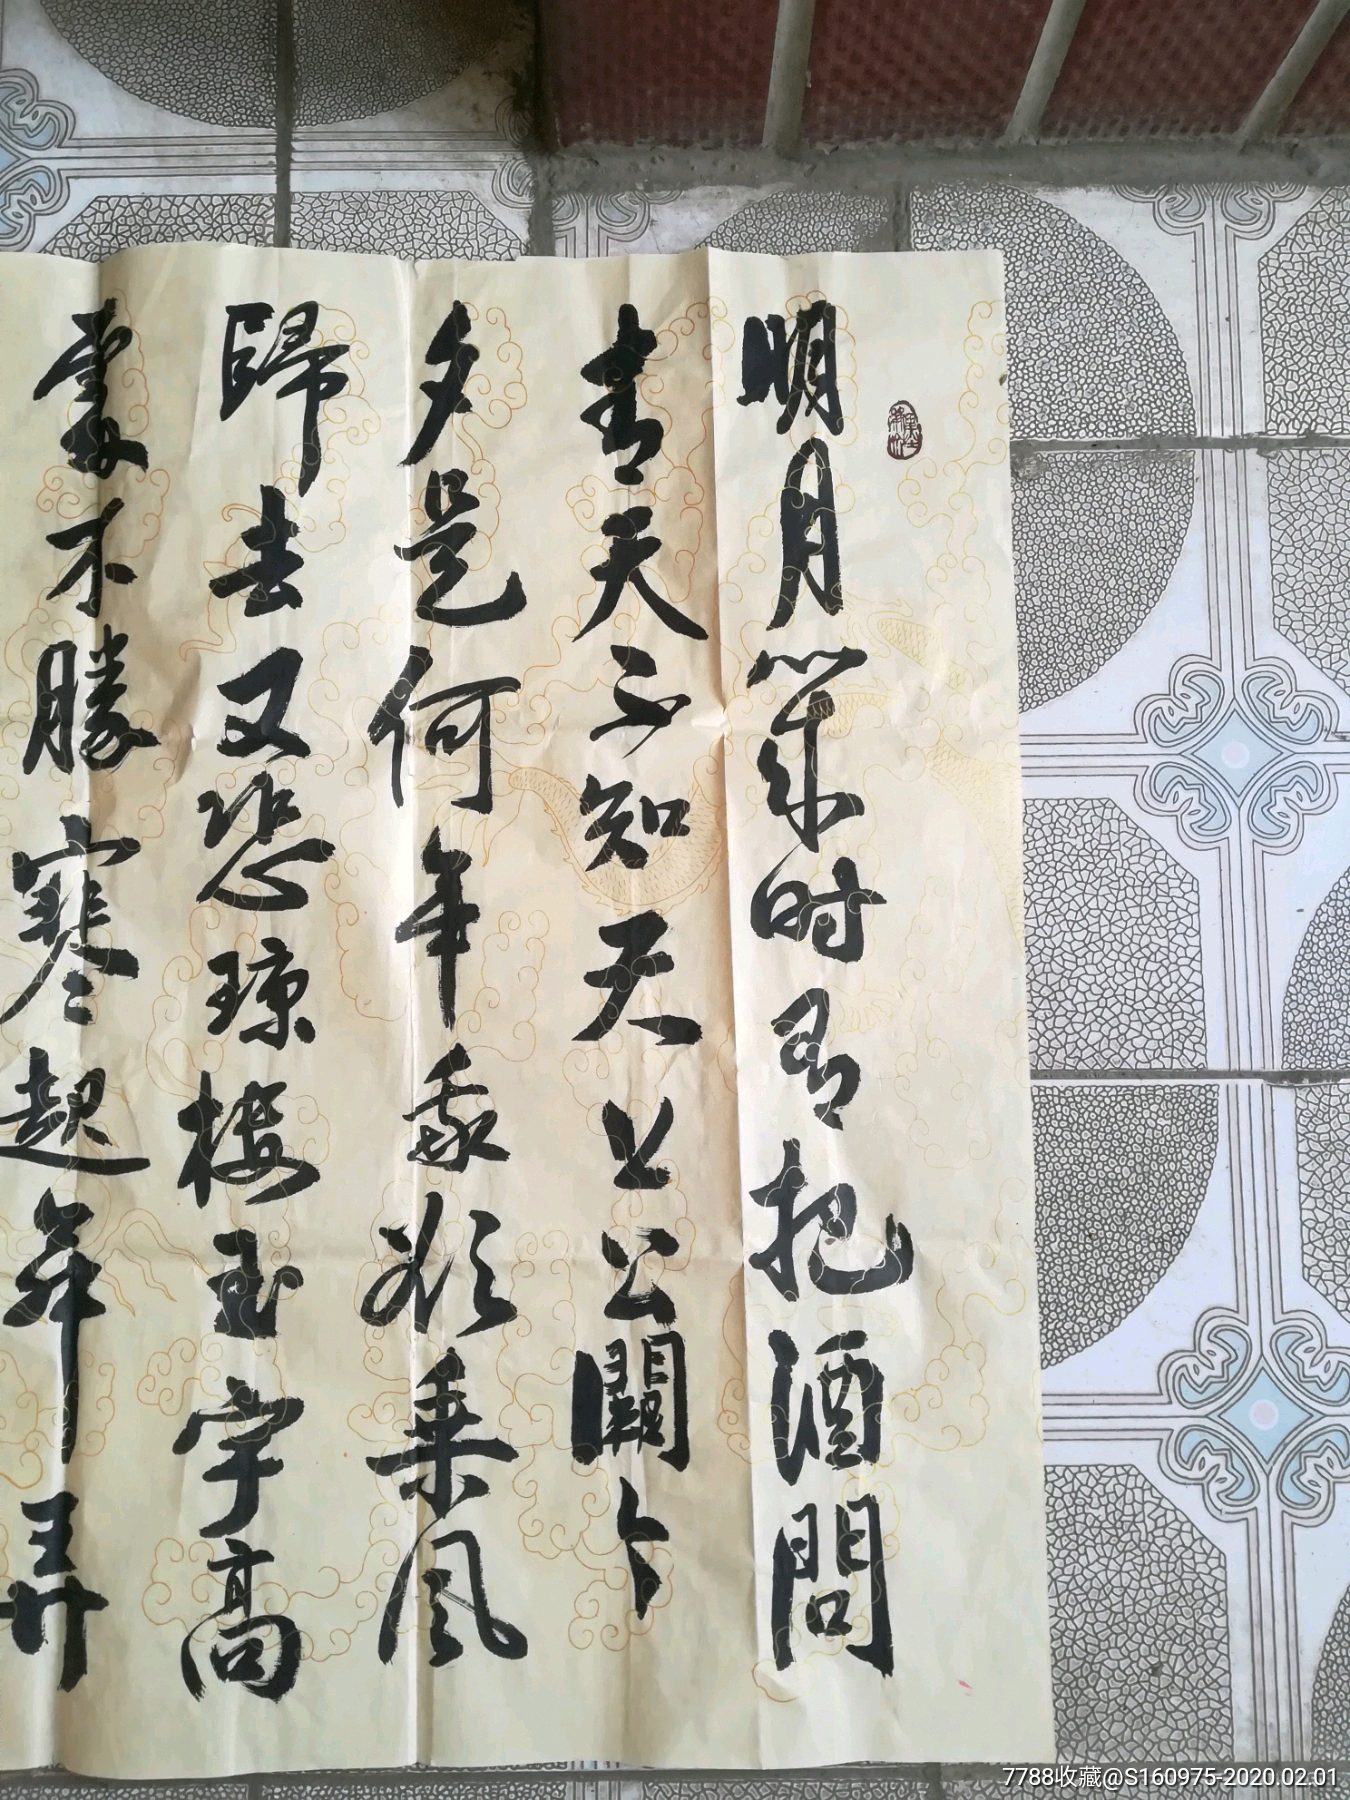 明月幾时有把酒問
青天不知天上公闕今
夕是何年我欲乘風
歸去又恐琼楼玉宇高
處不勝寒起舞弄
7788收藏@S160975-2020.02.01